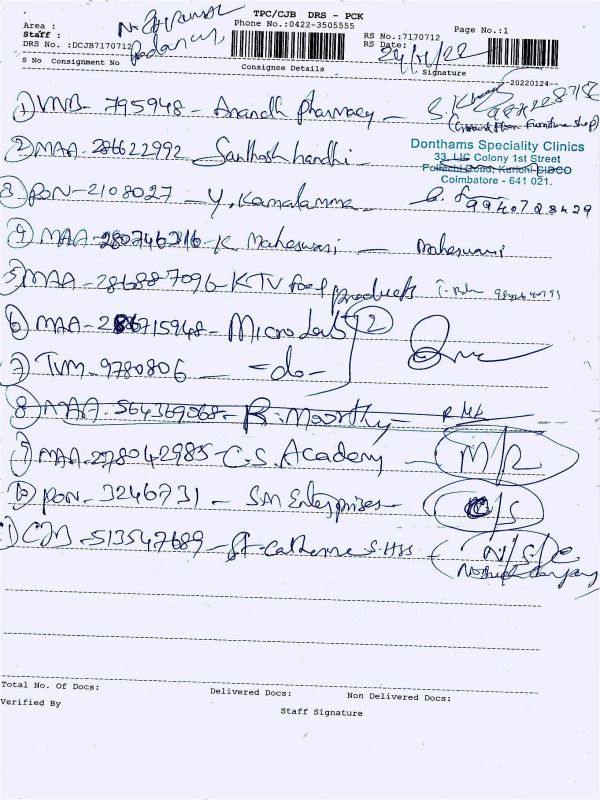 TPC/CJB DRS - PCK
Area :
Phone No.:0422-3505555
Page No.:1
Staff :
RS No.:7170712
DRS No. :DCJB7170712
RS Date:
24/1/22
S No Consignment No
Consignee Details
Signature
20220124
1) VNB - 795948 - Anandh pharmacy -
(Ground Floor Furniture shop)
2) MAA - 286622992 - Santhosh handhi -
Donthams Speciality Clinics
33, LIC Colony 1st Street
Pollachi Road, Kurichi SIDCO
Coimbatore - 641 021.
3) PON - 2108027 - Y. Kamalamma - 9940728429
4) MAA - 280746316 - K Maheswari - Maheswari
5) MAA - 286887096 - KTV food products
6) MAA - 286715948 - Micro Lab 2
7) TVM - 9780806 - -do-
8) MAA - 564369068 - R. Moorthy -
9) MAA - 278042985 - C.S. Academy - M/R
10) PON - 3246731 - SM Enterprises - /S
11) CJB - 513547689 - St. Catherine S. HSS - N/S/C
No Such Company
Total No. Of Docs:
Delivered Docs:
Non Delivered Docs:
Verified By
Staff Signature